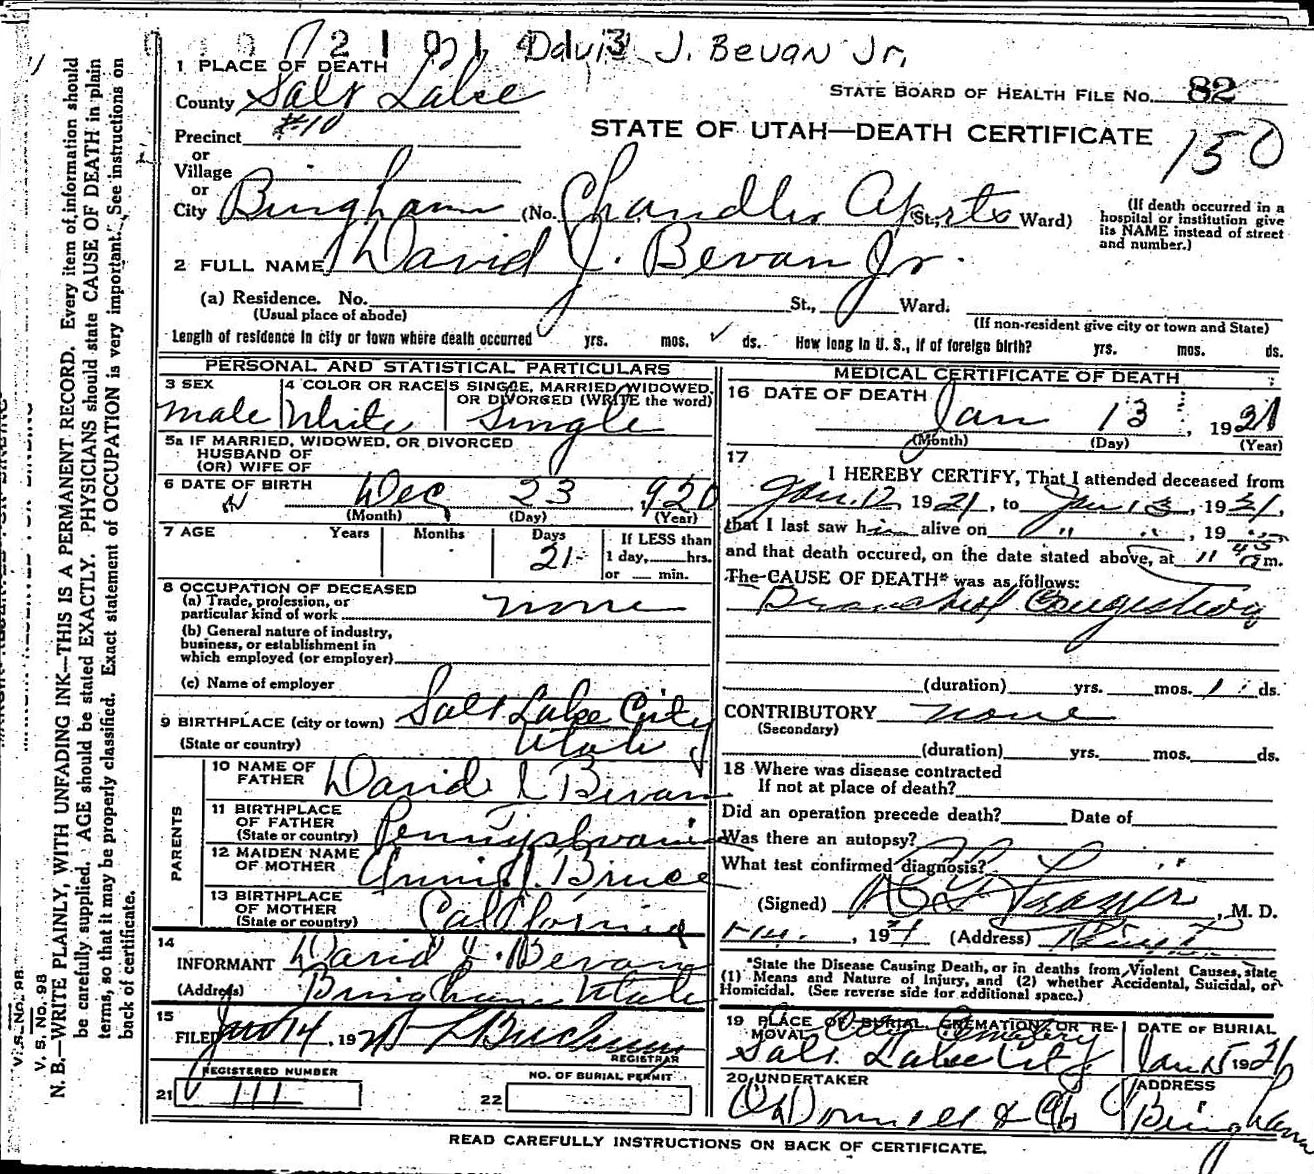 David J. Bevan Jr.
1 PLACE OF DEATH
County Salt Lake
STATE BOARD OF HEALTH FILE No. 82
Precinct #10
STATE OF UTAH—DEATH CERTIFICATE
150
or
Village
or
City Bingham (No. Chandler Aparts St., Ward)
(If death occurred in a
hospital or institution give
its NAME instead of street
and number.)
2 FULL NAME David J. Bevan Jr.
(a) Residence. No. St., Ward.
(Usual place of abode)
(If non-resident give city or town and State)
Length of residence in city or town where death occurred yrs. mos. ds. How long in U. S., if of foreign birth? yrs. mos. ds.
PERSONAL AND STATISTICAL PARTICULARS
3 SEX
male
4 COLOR OR RACE
White
5 SINGLE, MARRIED, WIDOWED,
OR DIVORCED (WRITE the word)
Single
5a IF MARRIED, WIDOWED, OR DIVORCED
HUSBAND OF
(OR) WIFE OF
6 DATE OF BIRTH
Dec 23, 920
(Month) (Day) (Year)
7 AGE Years Months Days
21
If LESS than
1 day, hrs.
or min.
8 OCCUPATION OF DECEASED
(a) Trade, profession, or
particular kind of work none
(b) General nature of industry,
business, or establishment in
which employed (or employer)
(c) Name of employer
9 BIRTHPLACE (city or town) Salt Lake City
(State or country) Utah
PARENTS
10 NAME OF
FATHER David Bevan
11 BIRTHPLACE
OF FATHER
(State or country) Pennsylvania
12 MAIDEN NAME
OF MOTHER Annie J. Bruce
13 BIRTHPLACE
OF MOTHER
(State or country) California
14
INFORMANT David J. Bevan
(Address) Bingham Utah
15
FILED Jan 14, 192
REGISTRAR
REGISTERED NUMBER
21 111
NO. OF BURIAL PERMIT
22
MEDICAL CERTIFICATE OF DEATH
16 DATE OF DEATH
Jan 13, 1921
(Month) (Day) (Year)
17
I HEREBY CERTIFY, That I attended deceased from
Jan. 12, 1921, to Jan 13, 1921,
that I last saw him alive on " ", 19
and that death occured, on the date stated above, at 11 45 a m.
The CAUSE OF DEATH* was as follows:
Bronchial Congestion
(duration) yrs. mos. 1 ds.
CONTRIBUTORY none
(Secondary)
(duration) yrs. mos. ds.
18 Where was disease contracted
If not at place of death?
Did an operation precede death? Date of
Was there an autopsy?
What test confirmed diagnosis?
(Signed) , M. D.
, 1921 (Address)
*State the Disease Causing Death, or in deaths from Violent Causes, state
(1) Means and Nature of Injury, and (2) whether Accidental, Suicidal, or
Homicidal. (See reverse side for additional space.)
19 PLACE OF BURIAL, CREMATION, OR RE-
MOVAL City Cemetery
Salt Lake City
DATE OF BURIAL
Jan 15 192
20 UNDERTAKER
O'Donnell & Co
ADDRESS
Bingham
READ CAREFULLY INSTRUCTIONS ON BACK OF CERTIFICATE.
V. S. No. 98
N. B.—WRITE PLAINLY, WITH UNFADING INK—THIS IS A PERMANENT RECORD. Every item of information should
be carefully supplied. AGE should be stated EXACTLY. PHYSICIANS should state CAUSE OF DEATH in plain
terms, so that it may be properly classified. Exact statement of OCCUPATION is very important. See instructions on
back of certificate.